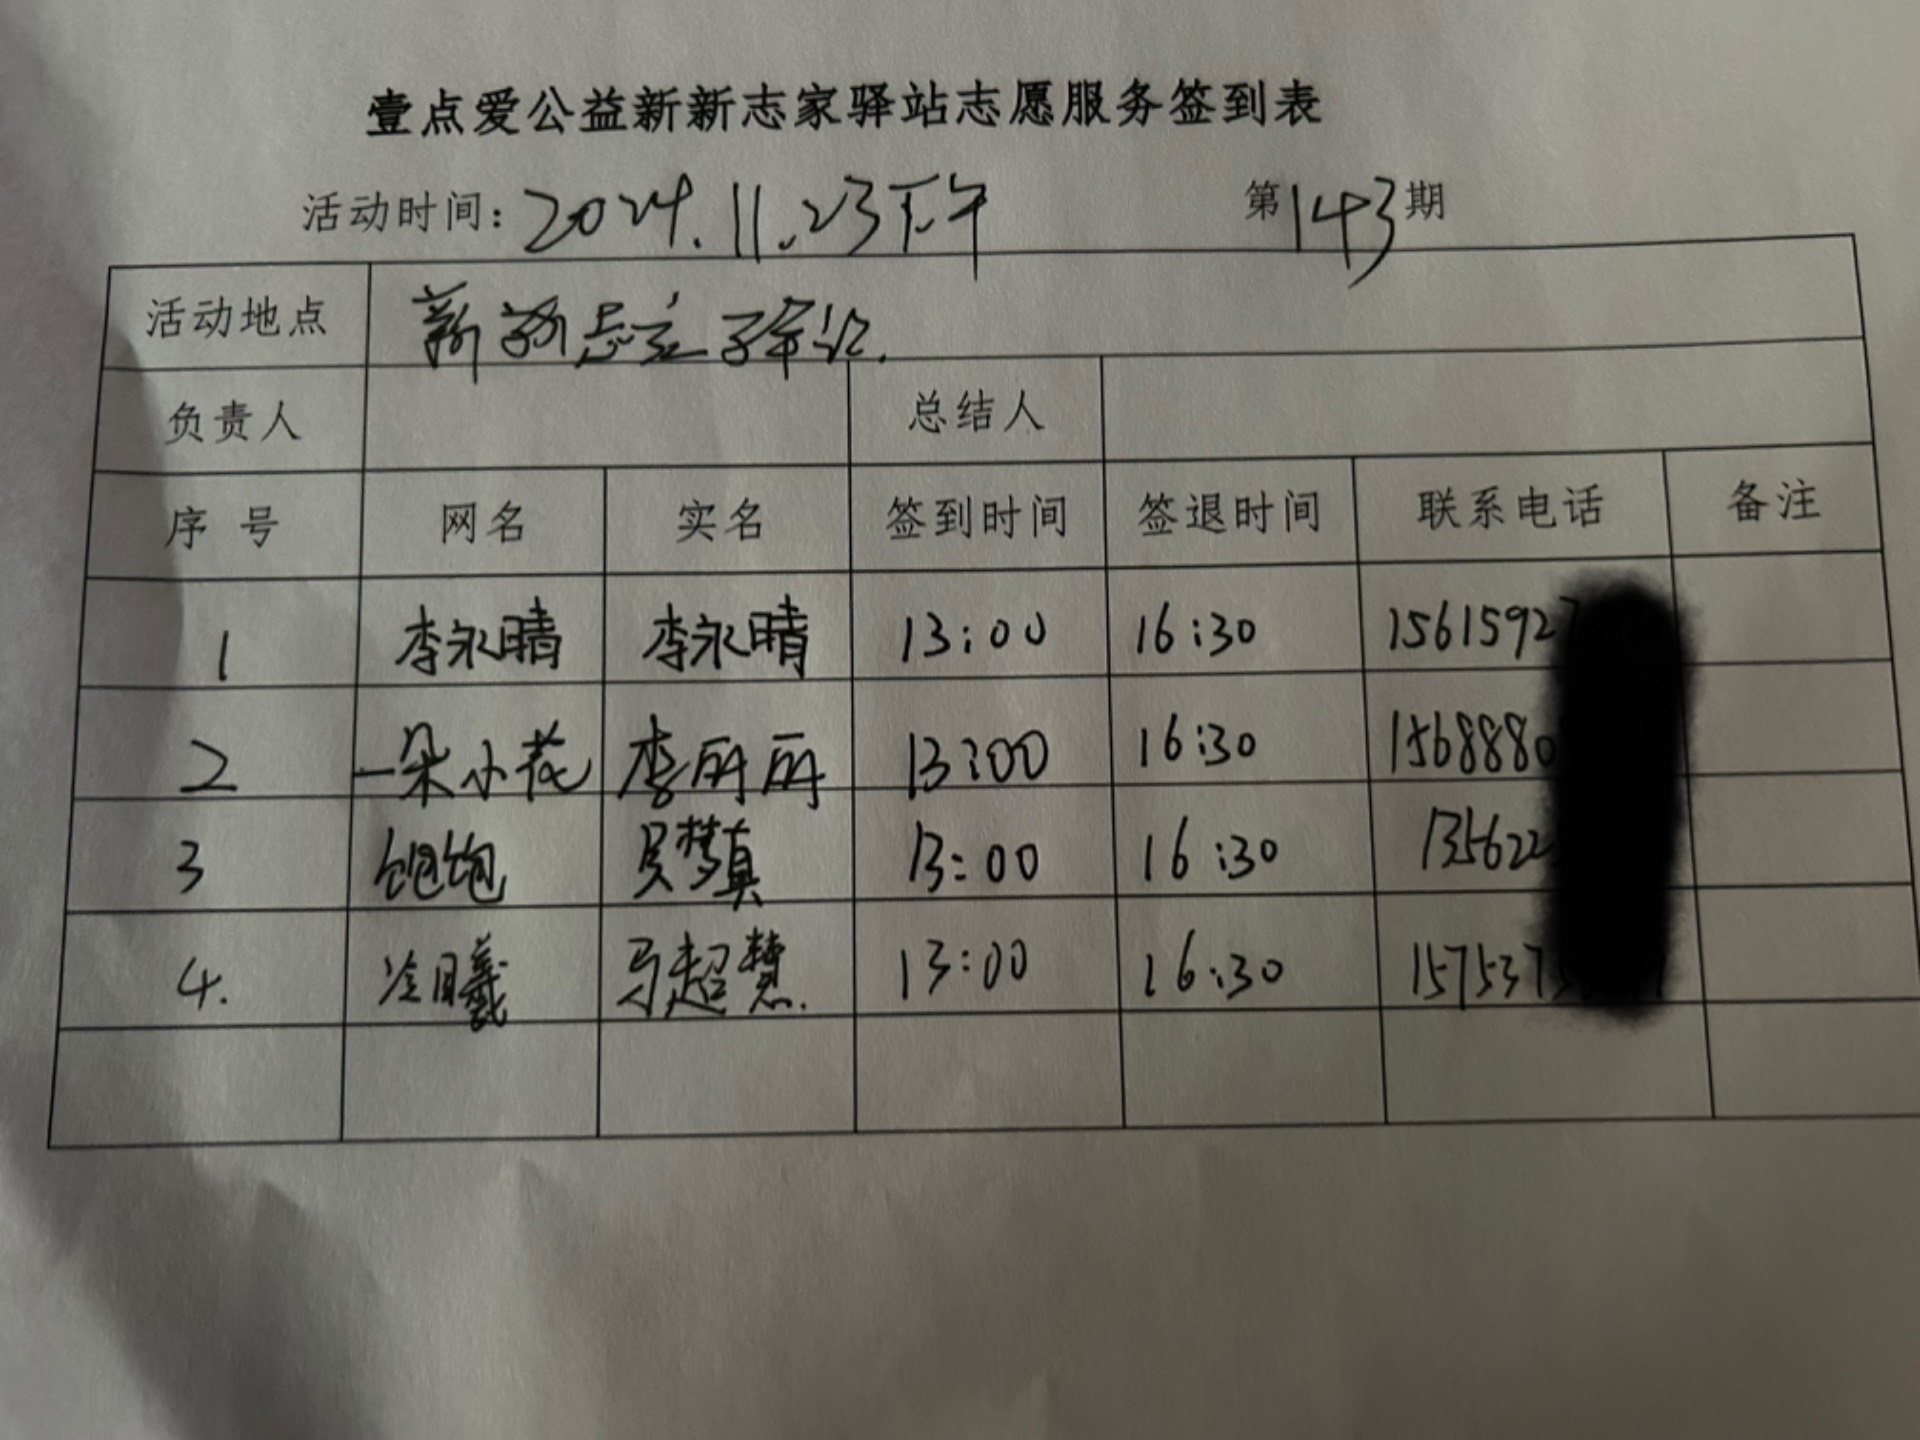 壹点爱公益新新志家驿站志愿服务签到表
活动时间：2024.11.23下午 第143期
活动地点 新新志家驿站.
负责人 总结人
序号 网名 实名 签到时间 签退时间 联系电话 备注
1 李永晴 李永晴 13:00 16:30 1561592
2 一朵小花 李丽丽 13:00 16:30 1568880
3 饱饱 吴梦真 13:00 16:30 135622
4. 冷曦 马超慧. 13:00 16:30 157537